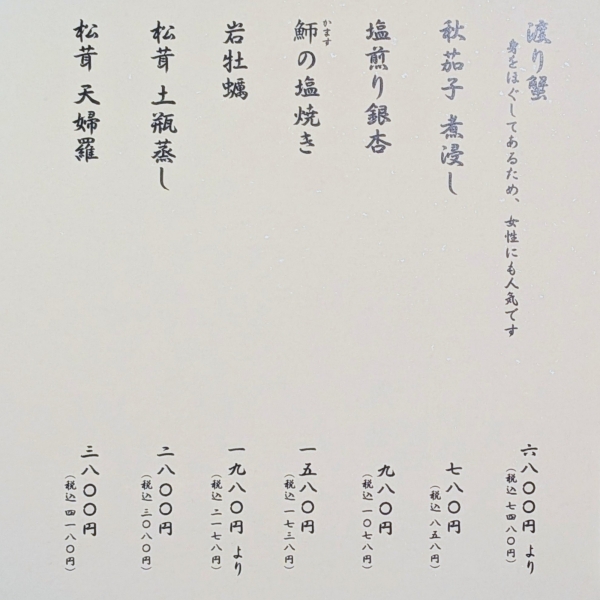 渡り蟹
身をほぐしてあるため、女性にも人気です
六八〇〇円 より
(税込 七四八〇円)
秋茄子 煮浸し
七八〇円
(税込 八五八円)
塩煎り銀杏
九八〇円
(税込 一〇七八円)
かます
魳の塩焼き
一五八〇円
(税込 一七三八円)
岩牡蠣
一九八〇円 より
(税込 二一七八円)
松茸 土瓶蒸し
二八〇〇円
(税込 三〇八〇円)
松茸 天婦羅
三八〇〇円
(税込 四一八〇円)